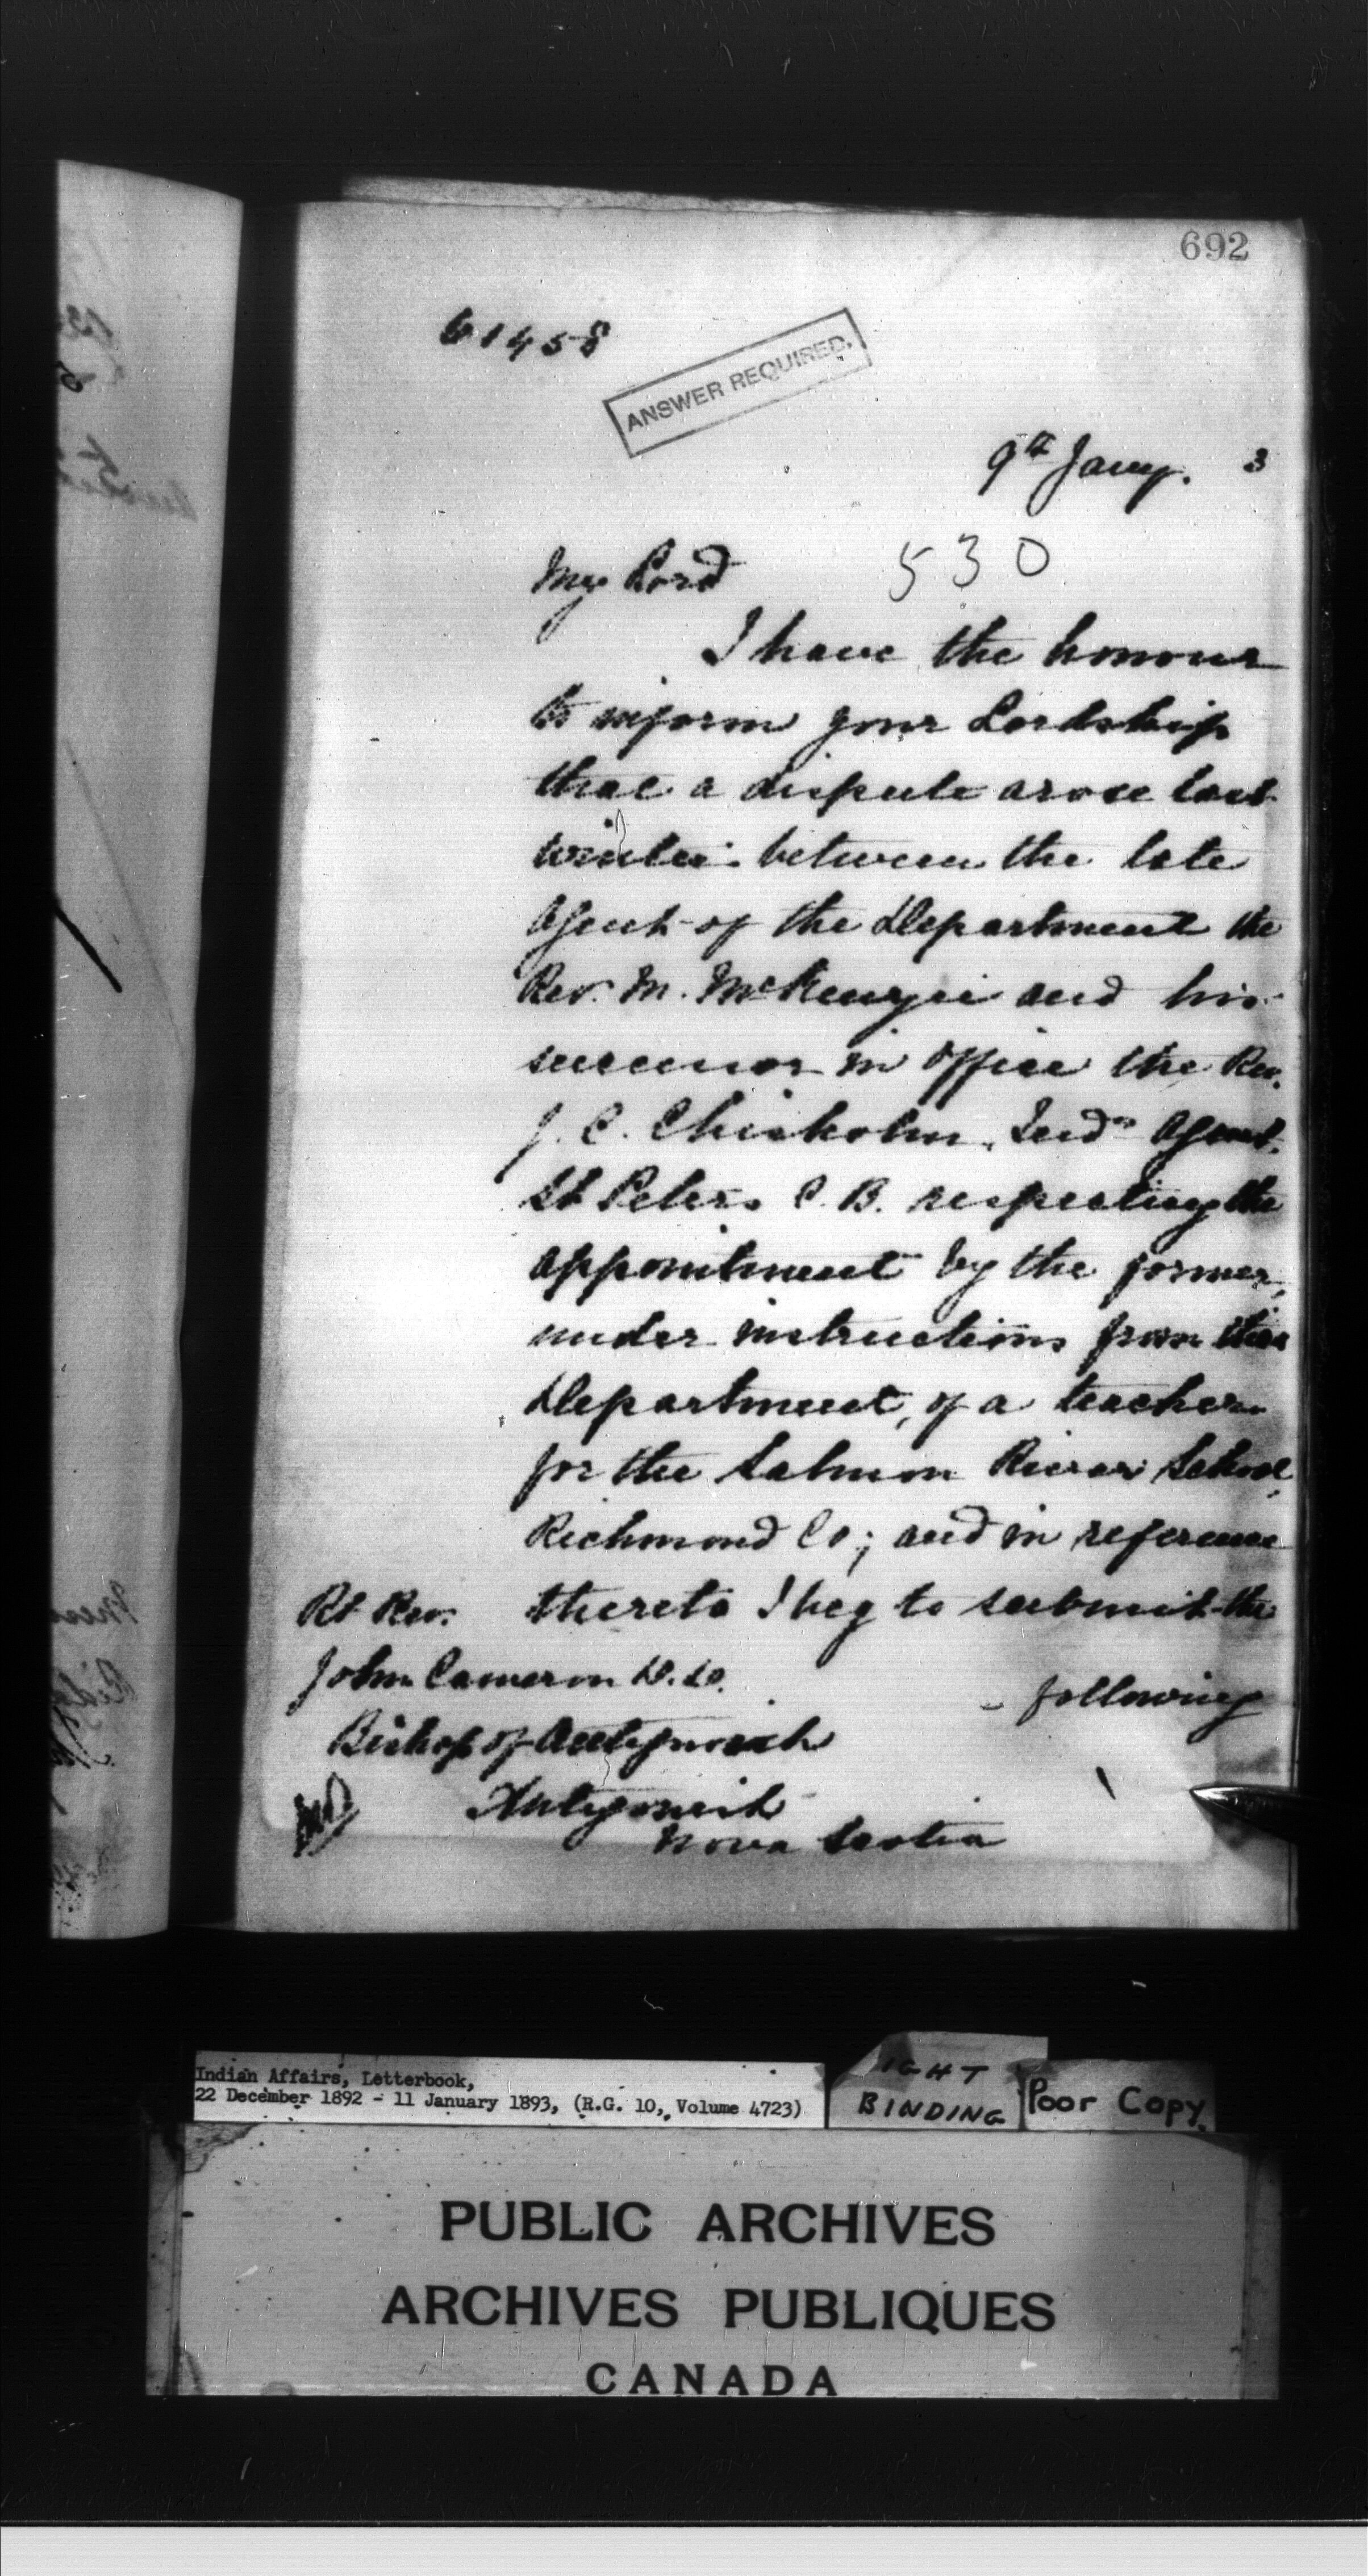 692
61458
ANSWER REQUIRED.
9th Jany. 3
My Lord 530
I have the honour
to inform your Lordship
that a dispute arose last
winter between the late
Agent of the Department the
Rev. M. McKenzie and his
successor in office the Rev.
J. C. Chisholm, Indn Agent.
St Peters C.B. respecting the
appointment by the former,
under instructions from this
Department, of a teacher
for the Salmon River School,
Richmond Co; and in reference
thereto I beg to submit the
following
Rt Rev.
John Cameron D.D.
Bishop of Antigonish
Antigonish
Nova Scotia
Indian Affairs, Letterbook,
22 December 1892 - 11 January 1893, (R.G. 10, Volume 4723)
IGHT
BINDING
Poor Copy.
PUBLIC ARCHIVES
ARCHIVES PUBLIQUES
CANADA